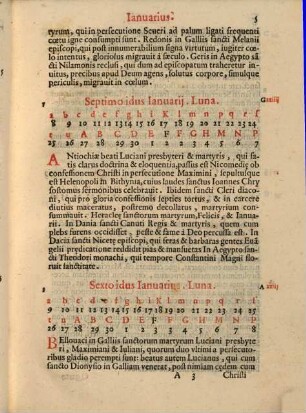 Ianuarius. 5
tyrum, qui in persecutione Seueri ad palum ligati frequenti
ictu igne consumpti sunt. Redonis in Gallijs sancti Melanij
episcopi, qui post innumerabilium signa virtutum, iugiter cœ
lo intentus, gloriosus migrauit à sæculo. Geris in Aegypto sā
cti Nilammonis reclusi, qui dum ad episcopatum traheretur in
uitus, precibus apud Deum agens, solutus corpore, simulque
periculis, migrauit in cœlum.
7 Septimo idus Ianuarij. Luna.
a b c d e f g h i k l m n p q r s
8 9 10 11 12 13 14 15 16 17 18 19 20 21 22 23 24
t u A B C D E F F G H M N P
25 26 27 28 29 30 1 2 3 4 5 6 7
ANtiochiæ beati Luciani presbyteri & martyris, qui sa-
tis clarus doctrina & eloquentia, passus est Nicomediæ ob
confessionem Christi in persecutione Maximini, sepultusque
est Helenopoli in Bithynia, cuius laudes sanctus Ioannes Chry
sostomus sermonibus celebrauit. Eiusdem sancti Cleri diaco
ni, qui pro gloria confessionis septies tortus, & in carcere
diutius maceratus, postremo decollatus, martyrium con-
summauit. Heracleæ sanctorum martyrum, Felicis, & Ianua-
rij. In Dania sancti Canuti Regis & martyris, quem cum
plebs furens occidisset, peste & fame à Deo perculsa est. In
Dacia sancti Nicetæ episcopi, qui feras & barbaras gentes Euā
gelij prædicatione reddidit pias & mansuetas In Aegypto san-
cti Theodori monachi, qui tempore Constantini Magni flo
ruit sanctitate.
8 Sexto idus Ianuarius. Luna.
a b c d e f g h i k l m n p q r s
9 10 11 12 13 14 15 16 17 18 19 20 21 22 23 24 25
t u A B C D E F F G H M N P
26 27 28 29 30 1 2 3 4 5 6 7 8
BEllouaci in Gallijs sanctorum martyrum Luciani presbyte
ri, Maximiani & Iuliani, quorum duo vltimi a persecuto-
ribus gladio perempti sunt: beatus autem Lucianus, qui cum
sancto Dionysio in Galliam venerat, post nimiam cædem cum
A 3 Christi